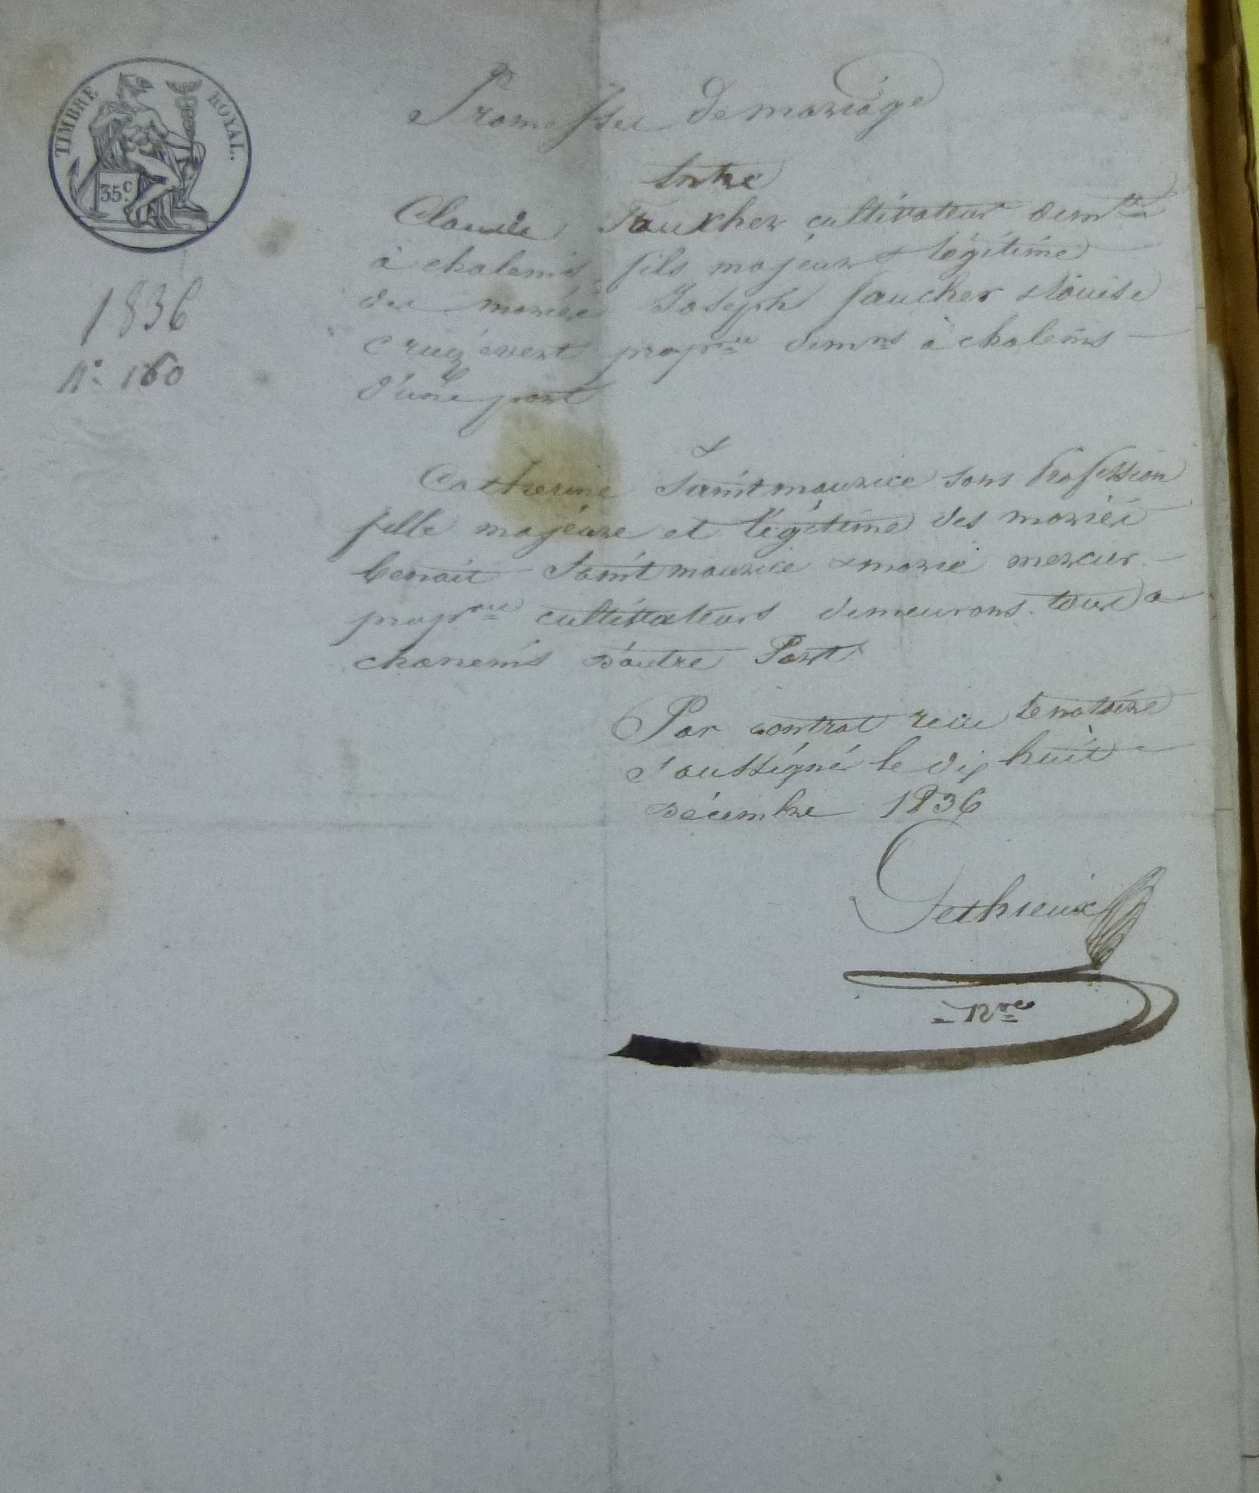 TIMBRE ROYAL.
35 c.
1836
N.° 160
Promesse de mariage
Entre
Claude Faucher cultivateur demt
à chalenis, fils majeur & légitime
des mariés Joseph faucher & Louise
propres demnts à chalenis
d'une part
&
Catherine Saintmaurice sans Profession
fille majeure et légitime des mariés
benoit Saintmaurice & marie mercier
propres cultivateurs demeurans tous a
chanenis d'autre Part
Par contrat reçu le notaire
soussigné le dix huit
Décembre 1836
Dethieux
Nre